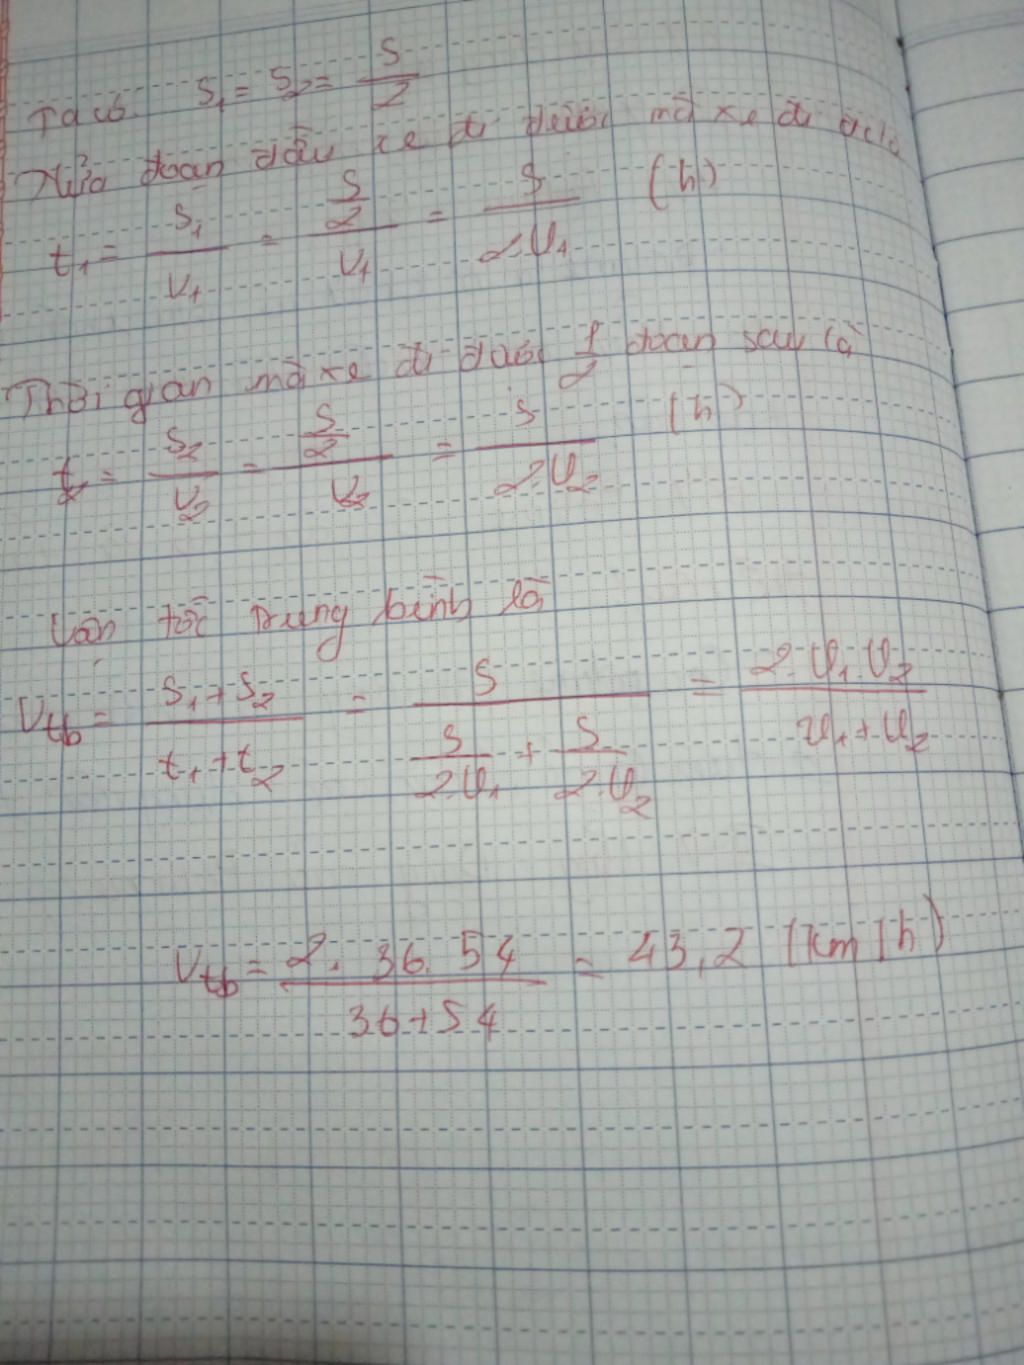 Ta có. S₁ = S₂ = S/2
Nửa đoạn đầu xe đi được mà xe đi là
t₁ = S₁/V₁ = (S/2)/V₁ = S/(2.V₁) (h)
Thời gian mà xe đi được 1/2 đoạn sau là
t₂ = S₂/V₂ = (S/2)/V₂ = S/(2.V₂) (h)
Vận tốc trung bình là
Vtb = (S₁+S₂)/(t₁+t₂) = S/(S/(2.V₁) + S/(2.V₂)) = (2.V₁.V₂)/(V₁+V₂)
Vtb = (2.36.54)/(36+54) = 43,2 (km/h)